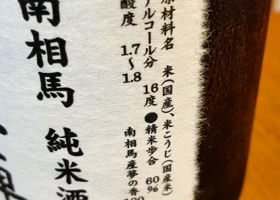 原材料名 米(国産)、米こうじ(国産米)
アルコール分 16度 ●精米歩合 60%
酸度 1.7〜1.8 南相馬産夢の香100
南相馬 純米酒